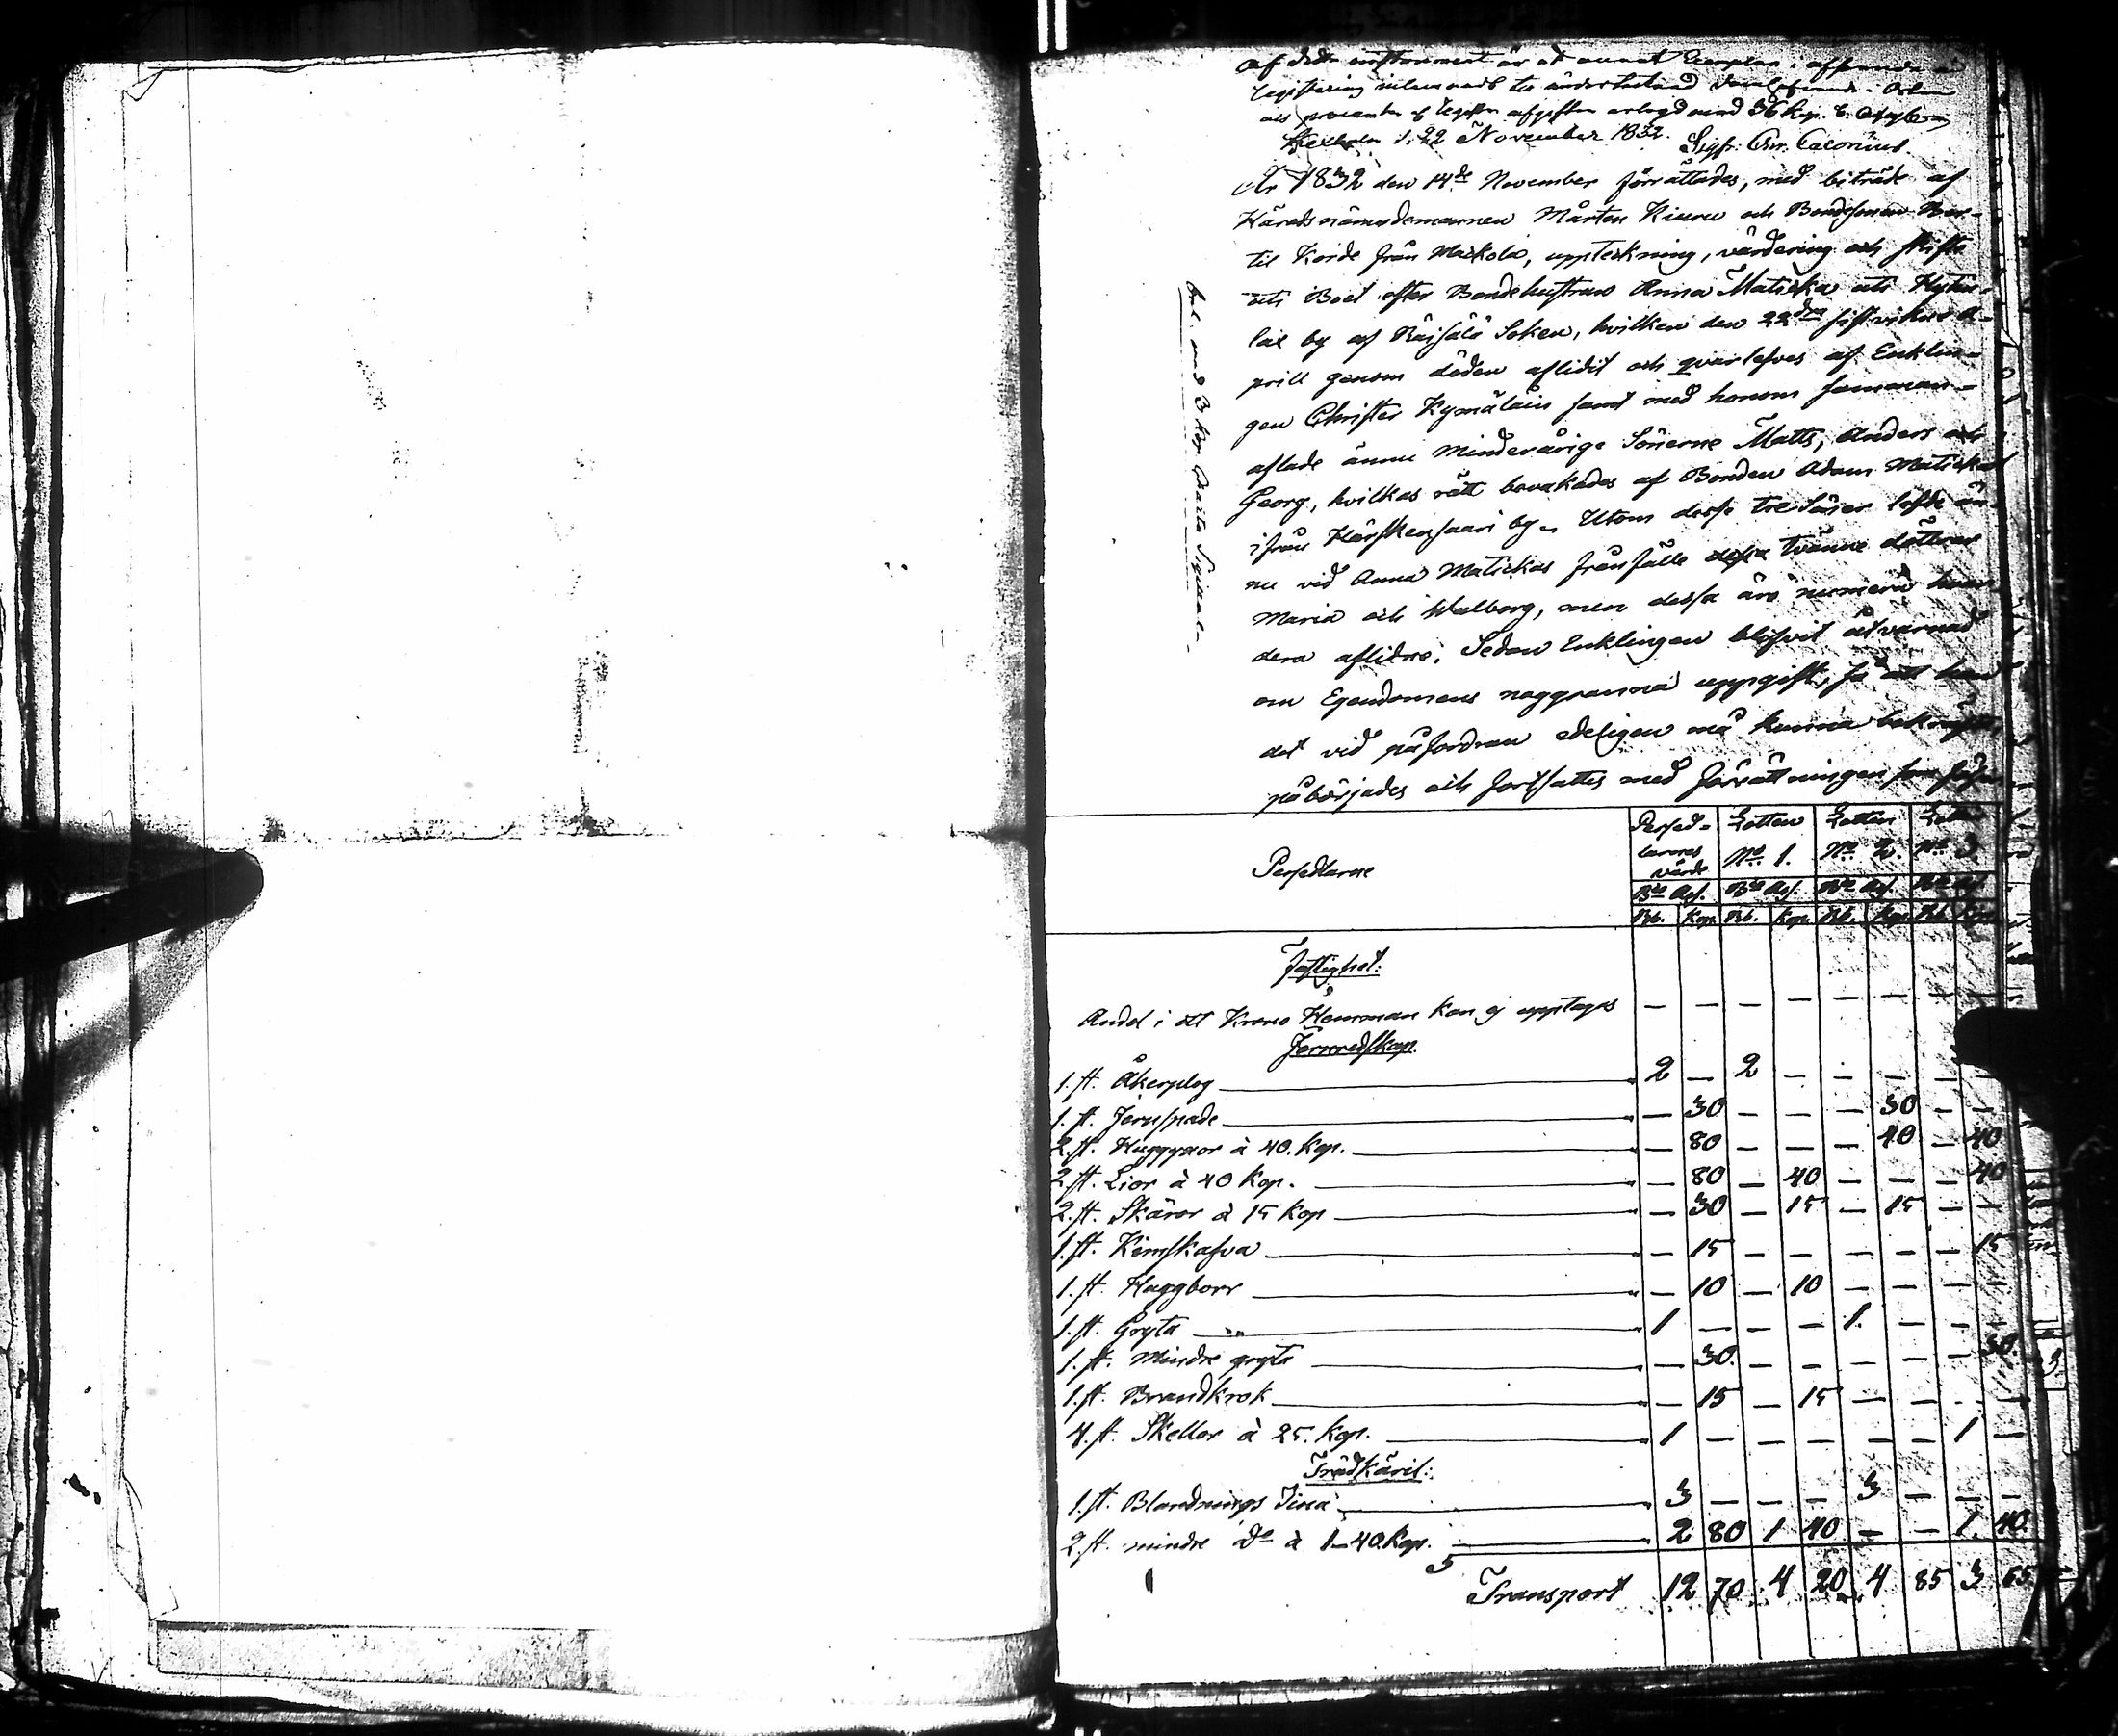 Af detta instrument är ett annat Exemplar
Kexholm d. 22 November 1832. Sigfr. Calonius.
År 1832 den 14de November förrättades, med biträde af
Häradsnämndemannen Mårten Kiuru och Bondesonen Ber-
til Koide från Maskola, uppteckning, värdering och skifte
uti Boet efter Bondehustrun Anna Maticka uti Hytin-
lax by af Räisälä Soken, hvilken den 22dra sistvikne A-
prill genom döden aflidit och qvarlefves af Enklin-
gen Christer Kymäläin samt med honom samman-
aflade ännu minderårige Sönerne Matts, Anders och
Georg, hvilkas rätt bevakades af Bonden Adam Matickas
ifrån Kärskensaari by. Utom desse tre Söner lefde än-
nu vid Anna Matickas frånfälle dessa tvänne döttrar
Maria och Walborg, men dessa äro numera
dera aflidne. Sedan Enklingen blifvit åtvarnad
om Egendomens noggranna uppgift, så att han
det vid påfordran edeligen må kunna bekräfta,
påbörjades och fortsattes med förrättningen som följer
Persedlarne
Persed-larnes värde Lotten No 1. Lotten No 2. Lotten No 3
Bco Ass. Bco Ass. Bco Ass. Bco Ass.
Rb. Kop. Rb. Kop. Rb. Kop. Rb. Kop.
Fastighet:
Andel i ett Krono Hemman kan ej upptagas — — — — — — — —
Jernredskap.
1. st. Åkerplog 2 — 2 — — — — —
1. st. Jernspade — 30 — — — 30 — —
2. st. Huggyxor à 40. Kop. — 80 — — — 40 — 40
2. st. Lior à 40 Kop. — 80 — 40 — — — 40
2. st. Skäror à 15 Kop — 30 — 15 — 15 — —
1. st. Kimskafva — 15 — — — — — 15
1. st. Huggborr — 10 — 10 — — — —
1. st. Gryta 1 — — — 1. — — —
1. st. Mindre gryta — 30. — — — — — 30.
1. st. Brandkrok — 15 — 15 — — — —
4. st. Skellor à 25. Kop. 1 — — — — — 1 —
Trädkäril:
1. st. Blandnings Tina 3 — — — 3 — — —
2. st. mindre do à 1-40. Kop. 2 80 1 40 — — 1. 40.
Transport 12 70 4 20 4 85 3 65.